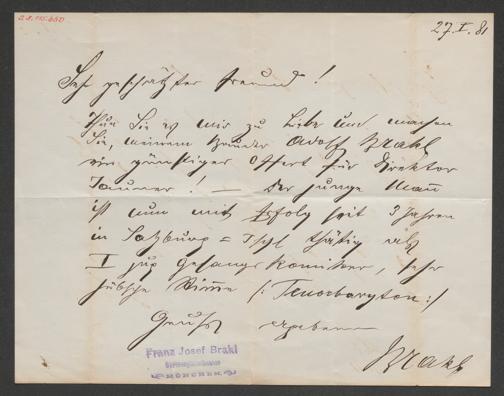 27.I.81
Sehr geschätzter Freund!
Thun Sie es mir zu Liebe und machen
Sie, meinem Bruder Adolf Brakl
ein günstiger Offert für Direktor
Tauner! — Der junge Mann
ist nun mit Erfolg seit 3 Jahren
in Salzburg = Ischl thätig als
I jug. Gesangskomiker, sehr
hübsche Stimme /: Tenorbaryton :/
Gruß ergebenst
Brakl
Franz Josef Brakl
MÜNCHEN